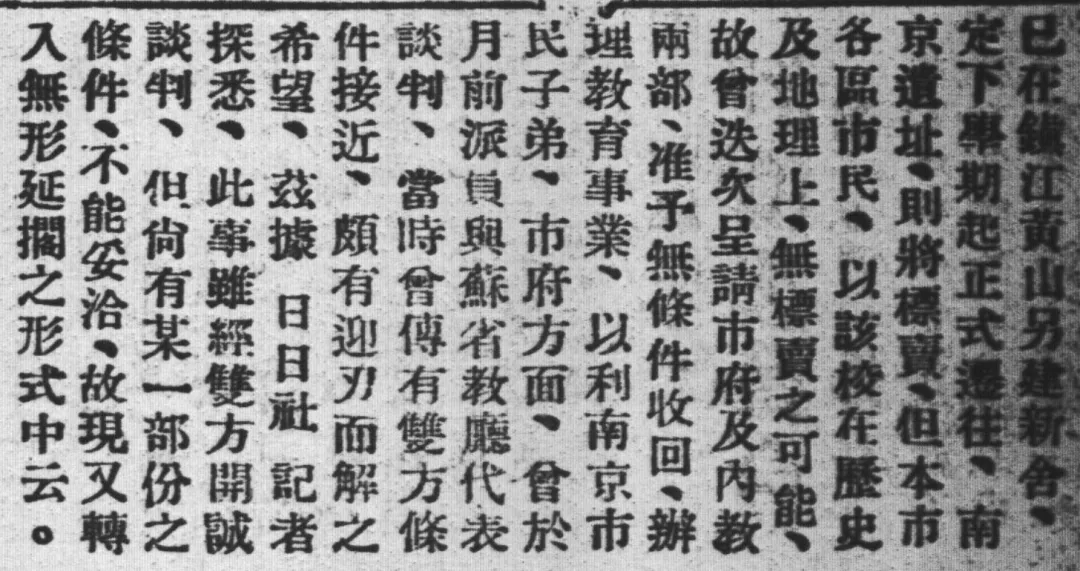 已在鎮江黃山另建新舍、
定下學期起正式遷往、南
京遺址、則將標賣、但本市
各區市民、以該校在歷史
及地理上、無標賣之可能、
故曾迭次呈請市府及內教
兩部、准予無條件收回、辦
理教育事業、以利南京市
民子弟、市府方面、曾於
月前派員與蘇省教廳代表
談判、當時曾傳有雙方條
件接近、頗有迎刃而解之
希望、茲據 日日社 記者
探悉、此事雖經雙方開誠
談判、但尙有某一部份之
條件、不能妥洽、故現又轉
入無形延擱之形式中云。